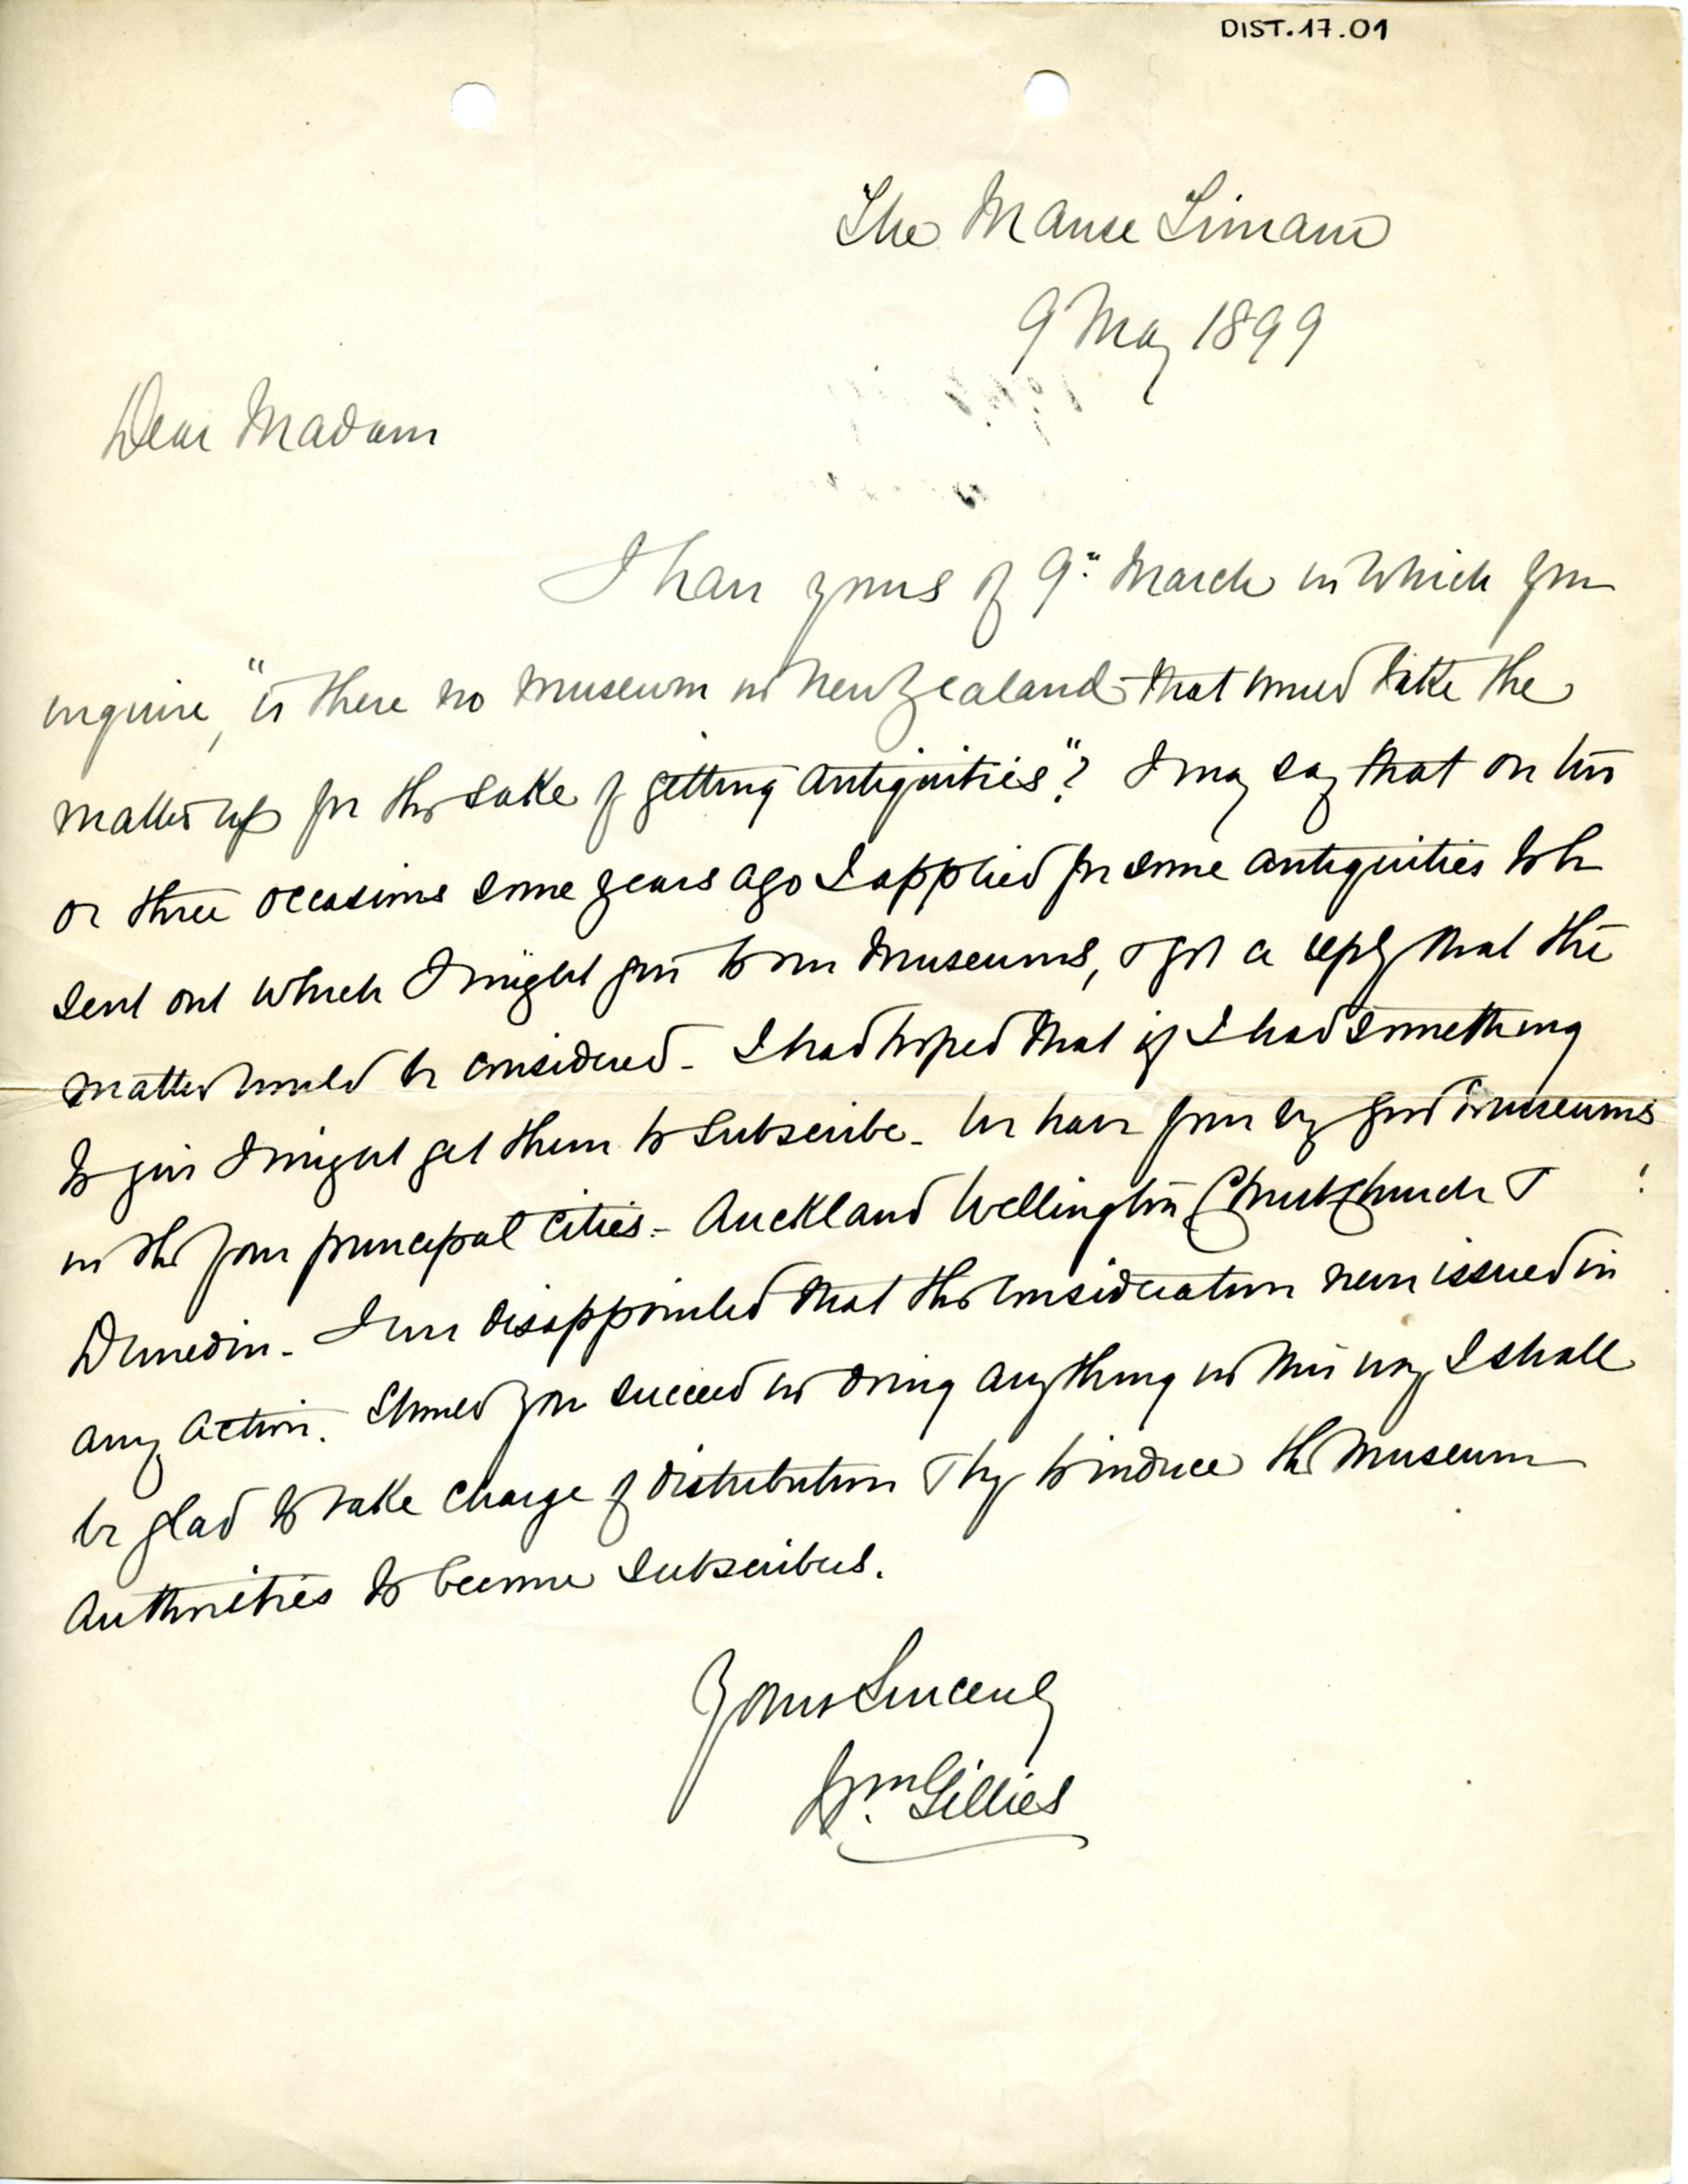 DIST.17.01
The Manse Timaru
9 May 1899
Dear Madam
I have yours of 9th March in which you
inquire, "is there no museum in New Zealand that would take the
matter up for the sake of getting antiquities"? I may say that on two
or three occasions some years ago I applied for some antiquities to be
sent out which I might give to our Museums, & got a reply that the
matter would be considered - I had hoped that if I had something
to give I might get them to subscribe - We have four very good museums
in the four principal cities - Auckland Wellington Christchurch &
Dunedin - I was disappointed that the consideration never issued in
any action. Should you succeed in doing anything in this way I shall
be glad to take charge of distribution & try to induce the Museum
authorities to become subscribers.
Yours Sincerely
Wm. Gillies